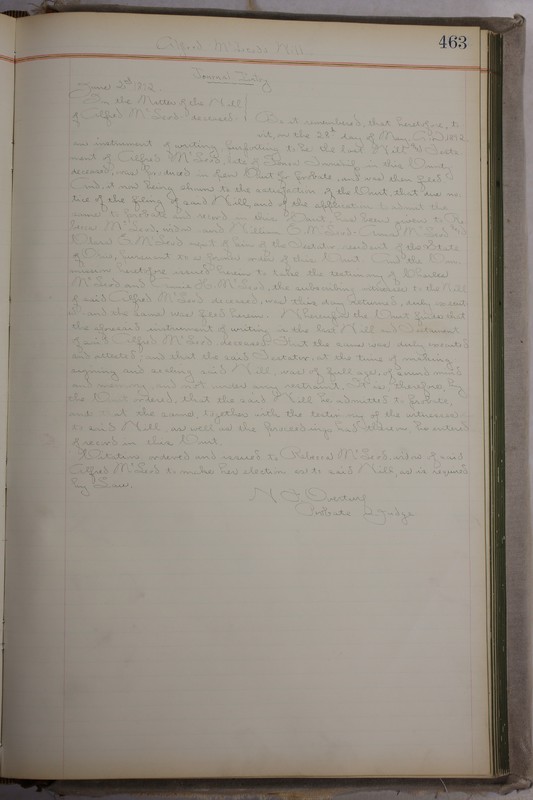 463
Alfred McLeod's Will.
Journal Entry
June 2nd 1892.
In the Matter of the Will
of Alfred McLeod deceased.
Be it remembered, that heretofore, to
wit, on the 28th day of May A.D. 1892
an instrument of writing purporting to be the last Will and Testa-
ment of Alfred McLeod, late of in this County,
deceased, was produced in open Court for probate, and was then filed
And, it now being shown to the satisfaction of the Court that due no-
tice of the filing of said Will, and of the application to admit the
same to probate and record in this Court has been given to
McLeod, widow and William McLeod, McLeod and
McLeod next of kin of the Testator, resident of the State
of Ohio, pursuant to a former order of this Court. And the Com-
mission heretofore issued herein to take the testimony of
McLeod and McLeod, the subscribing witnesses to the Will
of said Alfred McLeod deceased, was this day returned, duly execut-
ed and the same was filed herein. Whereupon the Court finds that
the aforesaid instrument of writing is the last Will and Testament
of said Alfred McLeod deceased, that the same was duly executed
and attested, and that the said Testator, at the time of making
signing and sealing said Will, was of full age, of sound mind
and memory, and not under any restraint. It is, therefore, by
the Court ordered, that the said Will be admitted to probate,
and that the same, together with the testimony of the witnesses
to said Will, as well as the proceedings had thereon be entered
of record in this Court.
Citation ordered and issued to McLeod, widow of said
Alfred McLeod to make her election as to said Will, as is required
by Law.
Probate Judge